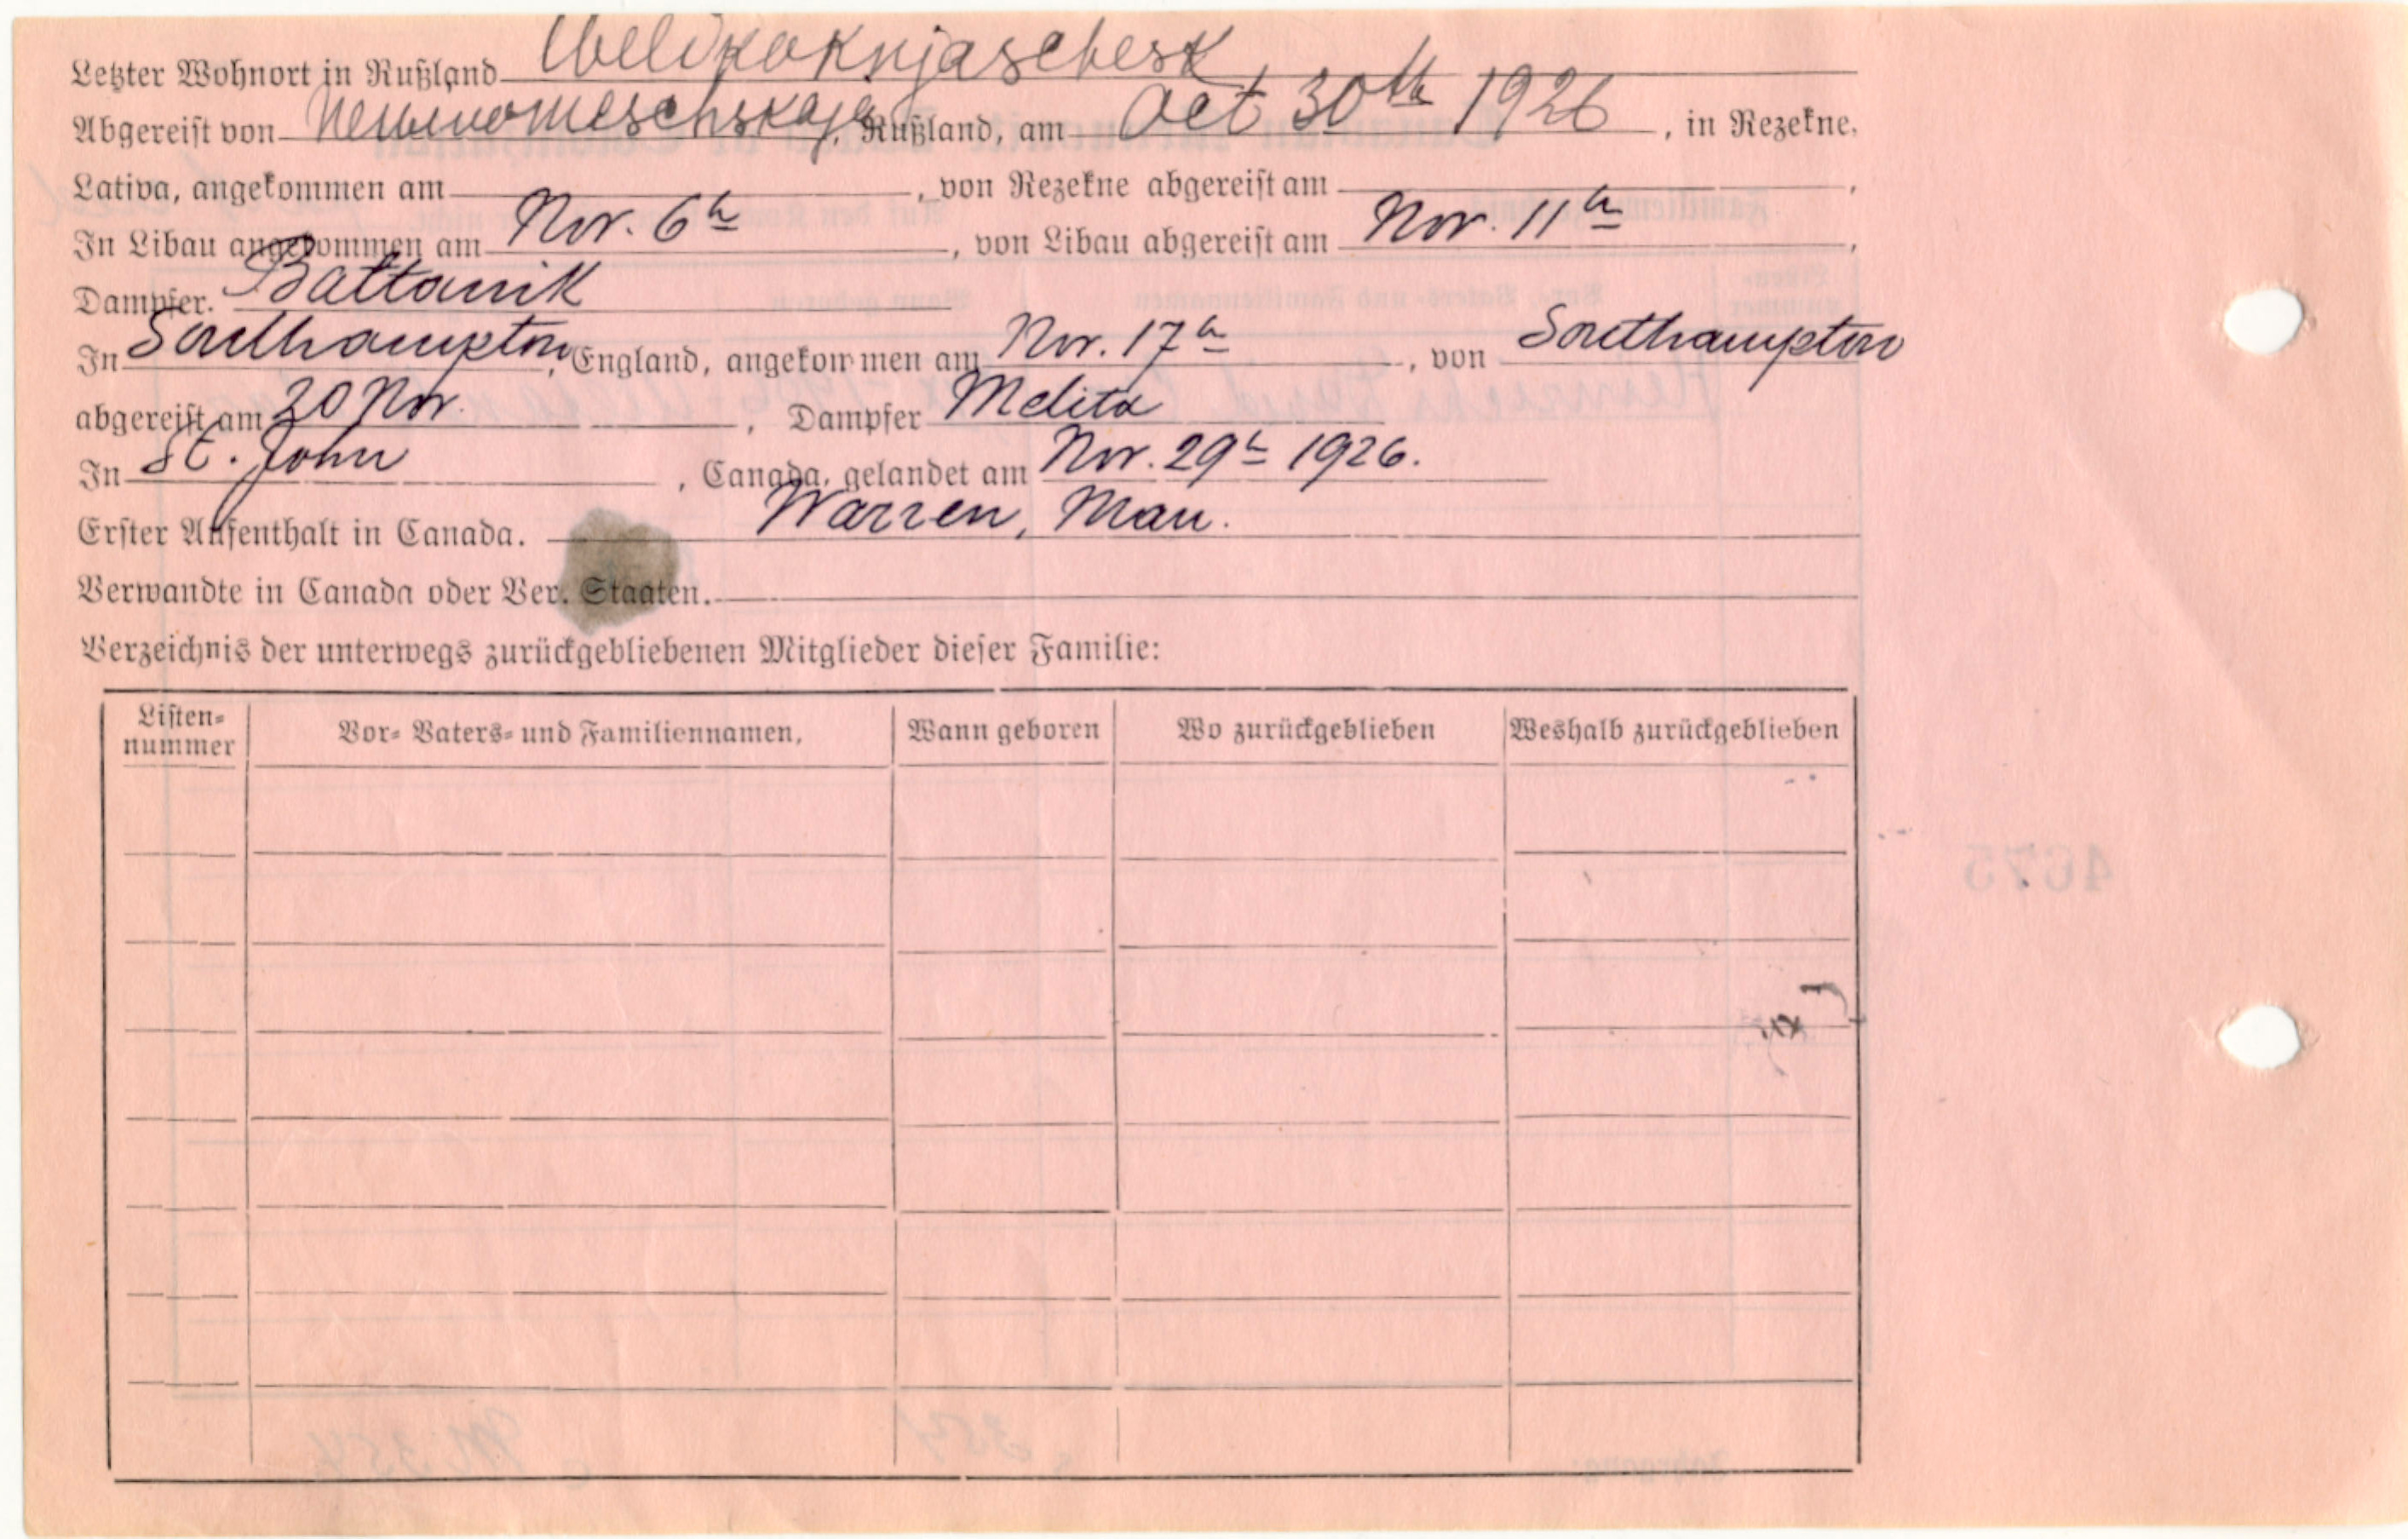 Letzter Wohnort in Rußland Welikoknjaschesk
Abgereist von Newinomeschskaja, Rußland, am Oct 30th 1926, in Rezekne,
Lativa, angekommen am , von Rezekne abgereist am ,
In Libau angekommen am Nov. 6th, von Libau abgereist am Nov. 11th,
Dampfer. Baltanik
In Southampton, England, angekommen am Nov. 17th, von Southampton
abgereist am 20 Nov. , Dampfer Melita
In St. John, Canada, gelandet am Nov. 29th 1926.
Erster Aufenthalt in Canada. Warren, Man.
Verwandte in Canada oder Ver. Staaten.
Verzeichnis der unterwegs zurückgebliebenen Mitglieder dieser Familie:
Listen-nummer Vor- Vaters- und Familiennamen, Wann geboren Wo zurückgeblieben Weshalb zurückgeblieben
4675